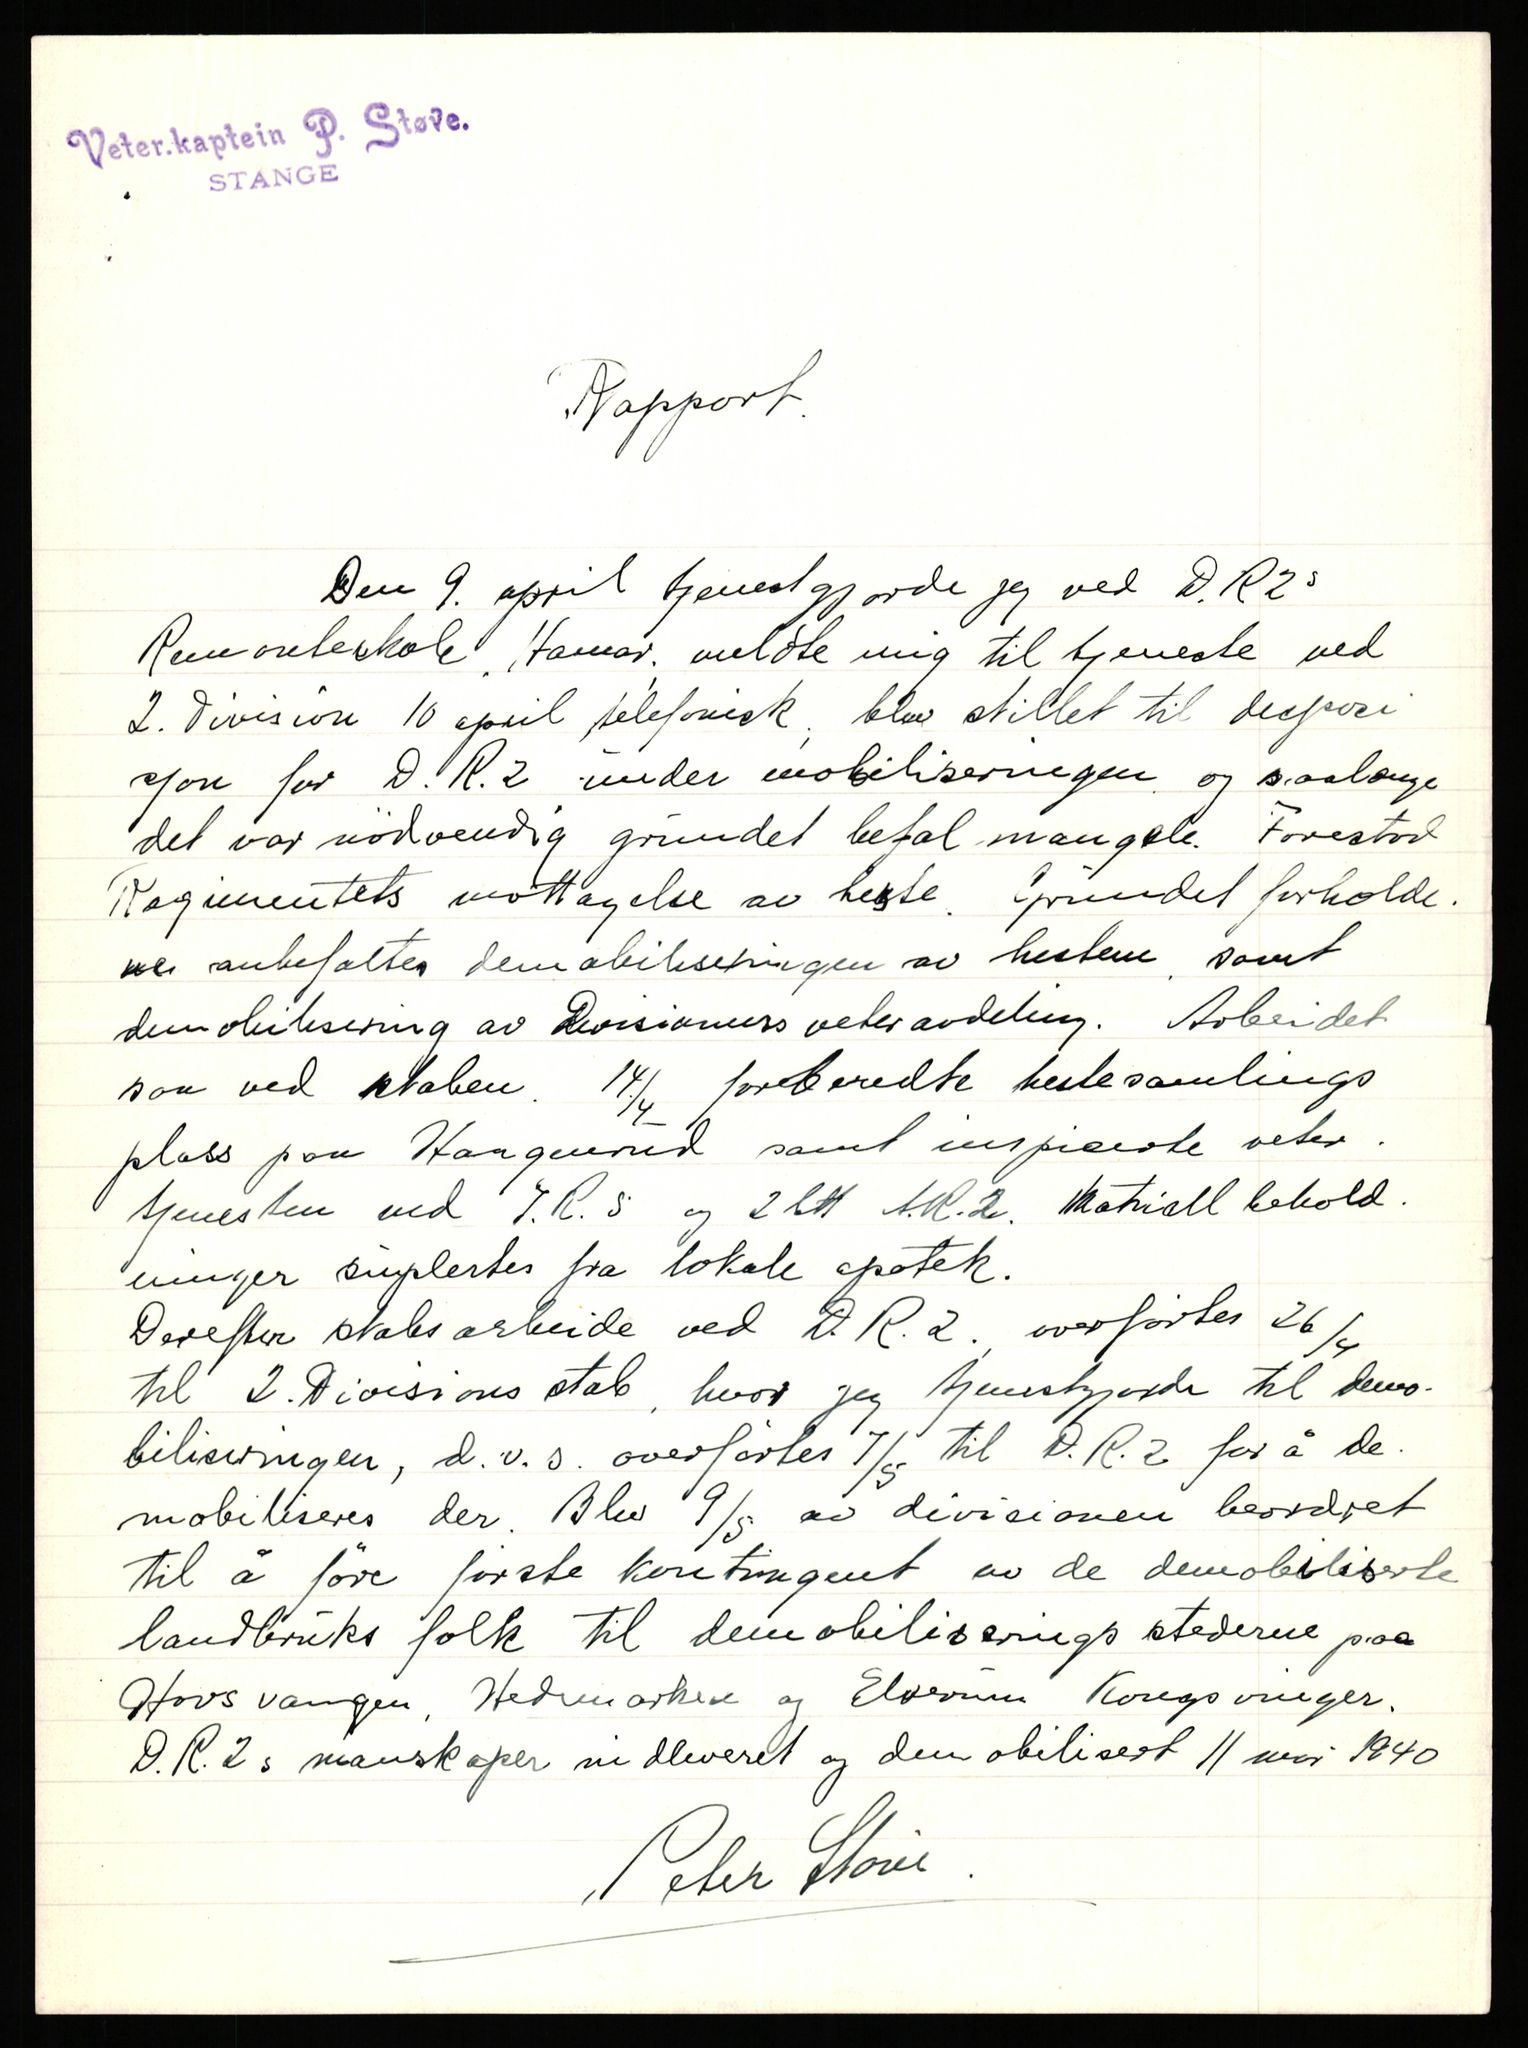 Veter.kaptein P. Støve.
STANGE
Rapport.
Den 9. april tjenestgjorde jeg ved D.R 2s
Remonteskole, Hamar, meldte mig til tjeneste ved
2. Division 10 april telefonisk, blev stillet til disposi
sjon for D.R.2 under mobiliseringen og saalenge
det var nödvendig grundet befal mangele. Forestod
Regimentets mottagelse av heste. Grundet forholde.
ne anbefaltes demobiliseringen av hestene, samt
demobilisering av Divisionens veteravdeling. Arbeidet
saa ved staben. 14/4 forberedte hestesamlings
plass paa Haugnerud samt inspiserte veter.
tjenesten ved I.R. 5 og 2 btt A.R.2. Matriell behold.
ninger suplertes fra lokale apotek.
Derefter stabsarbeide ved D.R.2., overførtes 26/4
til 2. Divisions stab, hvor jeg tjenestgjorde til demo-
biliseringen, d.v.s. overførtes 7/5 til D.R.2 for å de.
mobiliseres der. Blev 9/5 av divisionen beordret
til å före första kontingent av de demobiliserte
landbruks folk til demobiliserings stederne paa
Hovsvangen, Hedmarken og Elverum Kongsvinger.
D.R.2s manskaper indleveret og demobilisert 11 mai 1940
Peter Støve.